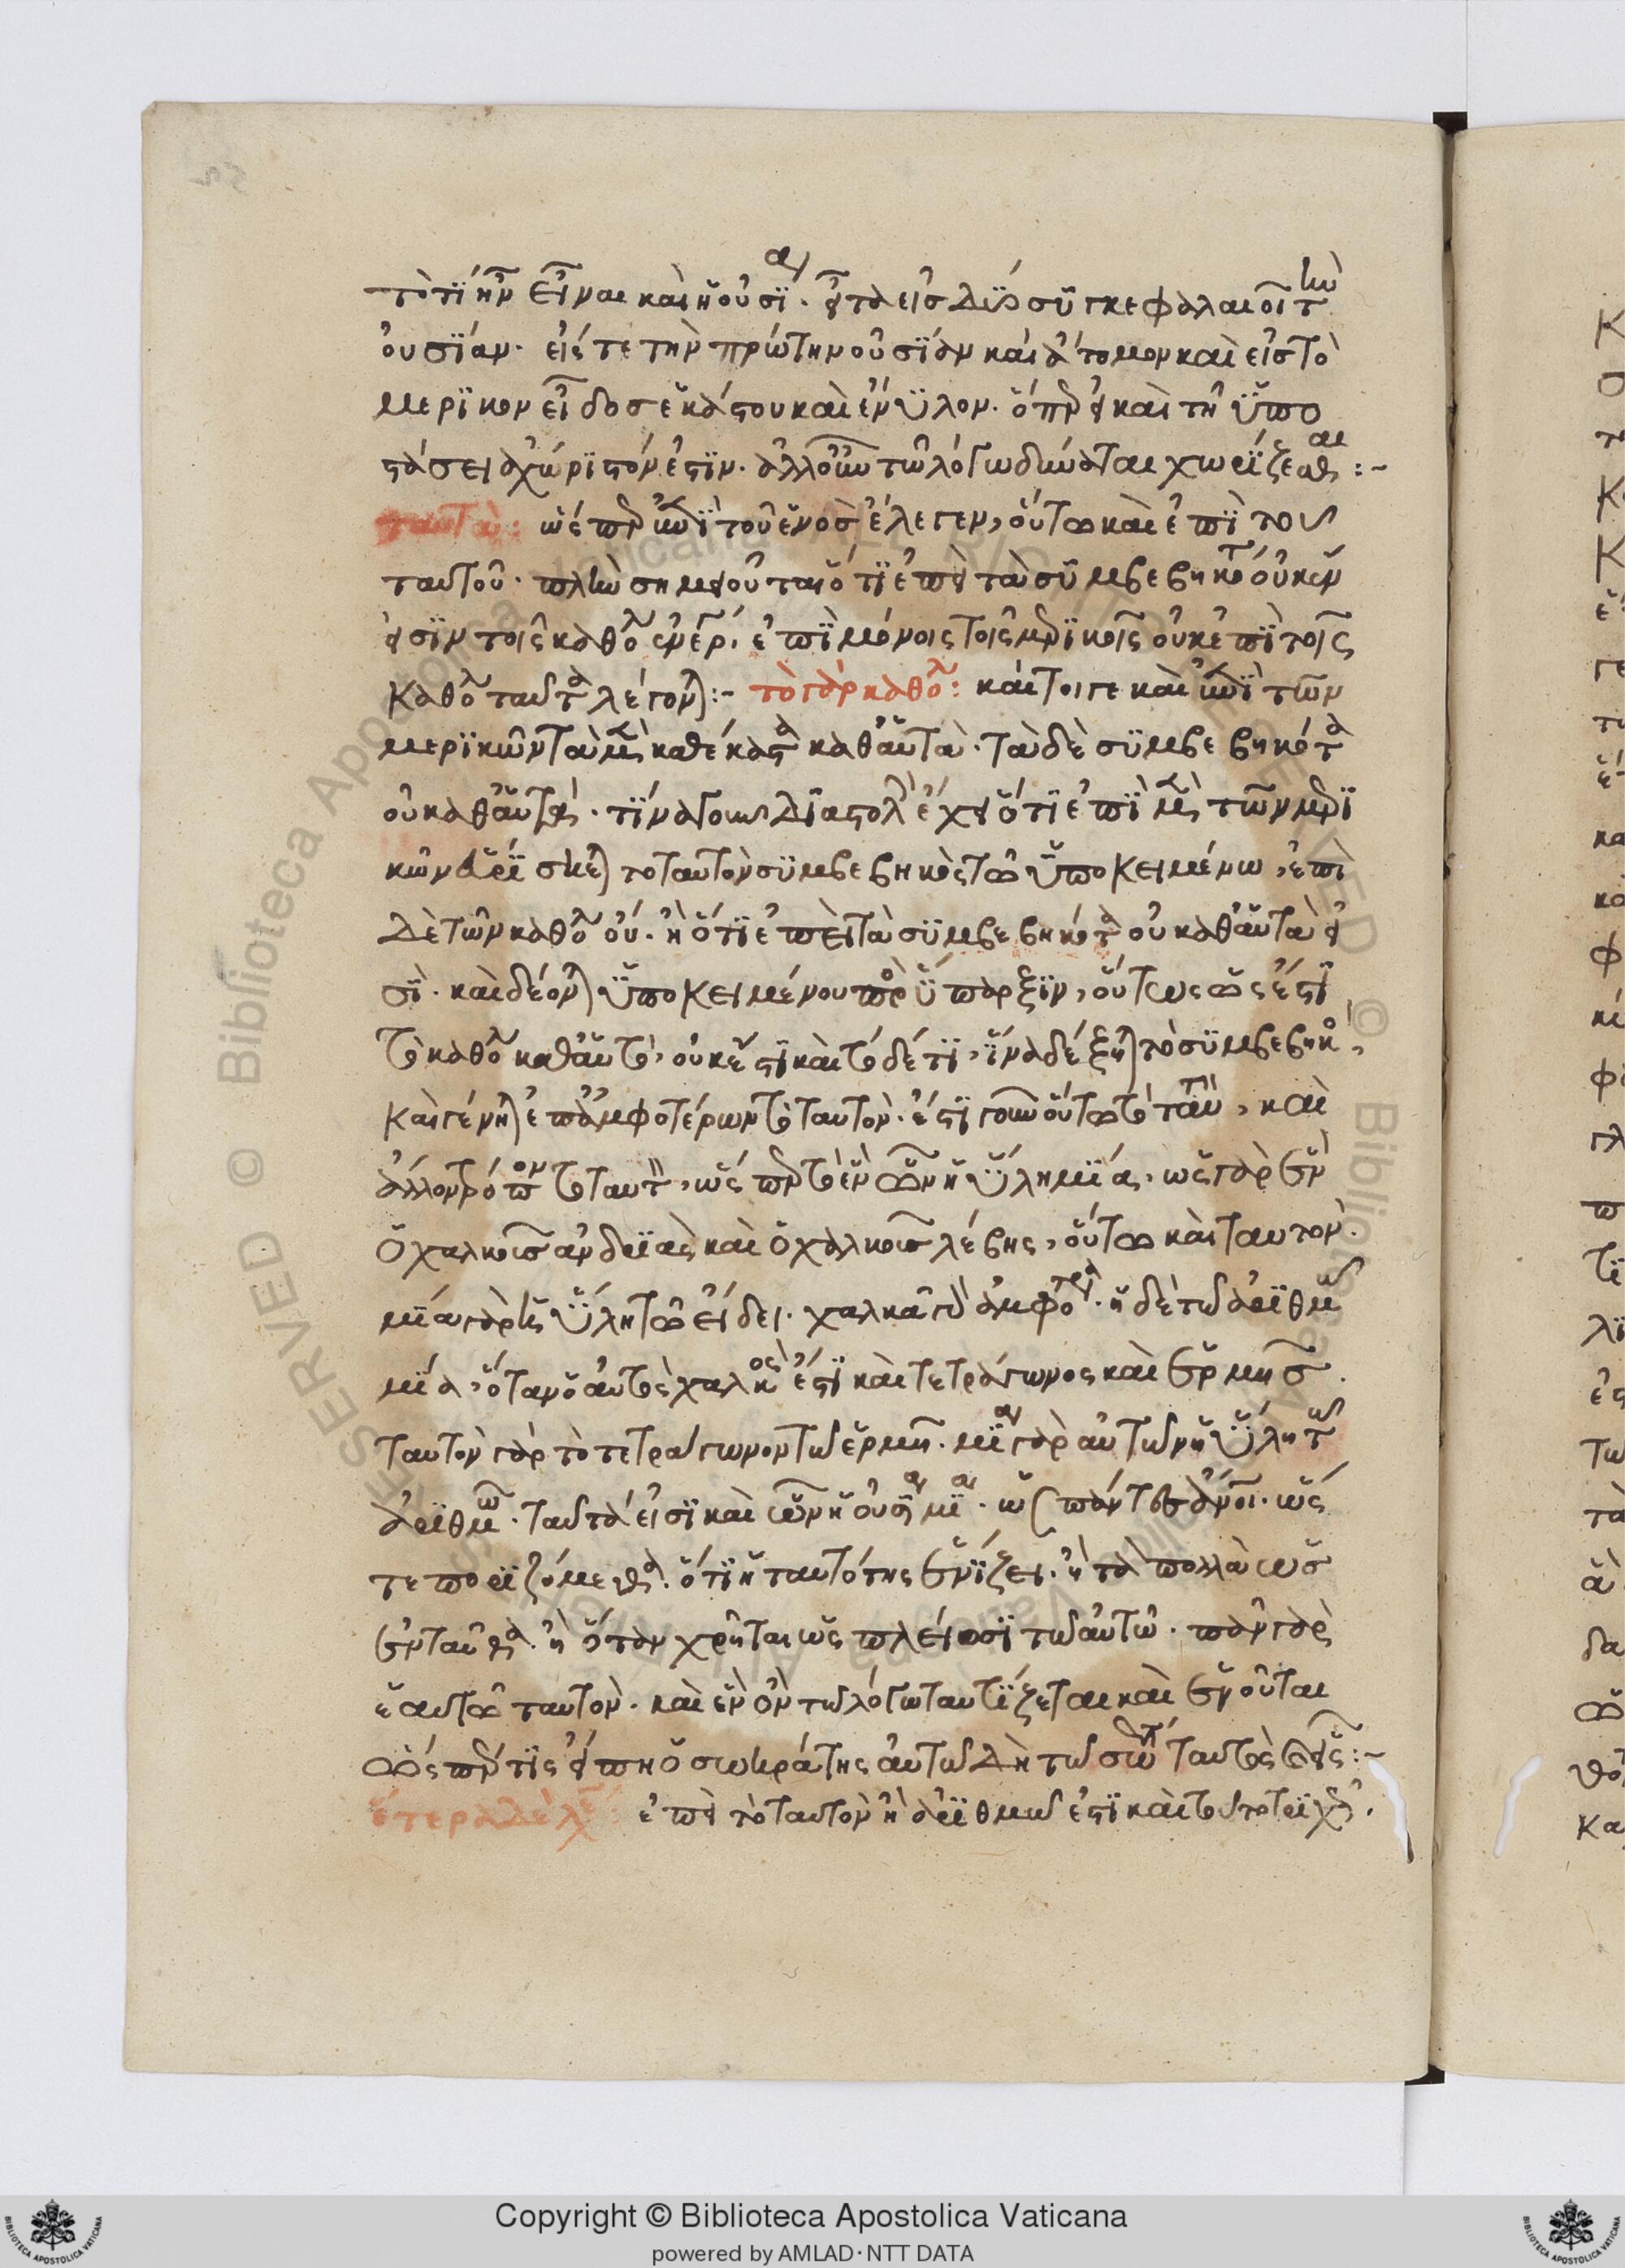 τὸ τί ἦν εἶναι καὶ ἡ οὐσία. εἶτα εἰς δύο συγκεφαλαιοῖ τὴν
οὐσίαν. εἴς τε τὴν πρώτην οὐσίαν καὶ ἄτομον καὶ εἰς τὸ
μερικὸν εἶδος ἑκάστου καὶ ἔνυλον. ὅπερ καὶ τῇ ὑπο
στάσει ἀχώριστόν ἐστιν. ἀλλ' οὖν τῷ λόγῳ δύναται χωρίζεσθαι :-
ταυτὰ: ὥσπερ ἐπὶ τοῦ ἑνὸς ἔλεγεν, οὕτω καὶ ἐπὶ τοῦ
ταυτοῦ. πλὴν σημειοῦται ὅτι ἐπεὶ τὰ συμβεβηκότα οὐκ ἔν
εισιν τοῖς καθόλου ἐπὶ μόνοις τοῖς μερικοῖς οὐκ ἐπὶ τοῖς
καθόλου ταῦτα λέγονται :- τὸ γὰρ καθόλου: καίτοιγε καὶ ἐπὶ τῶν
μερικῶν τὰ μὲν καθέκαστα καθ' αὑτά. τὰ δὲ συμβεβηκότα
οὐ καθ' αὑτά. τίνα γοῦν διαστολὴν ἔχει ὅτι ἐπὶ μὲν τῶν μερι
κῶν εὑρίσκεται τὸ ταυτὸν συμβεβηκὸς τῷ ὑποκειμένῳ, ἐπὶ
δὲ τῶν καθόλου οὔ. ἢ ὅτι ἐπεὶ τὰ συμβεβηκότα οὐ καθ' αὑτά εἰ
σι. καὶ δέονται ὑποκειμένου πρὸς ὕπαρξιν, οὕτως ὡς ἔστι
τὸ καθόλου καθ' αὑτό, οὐκ ἔστι καὶ τόδέ τι, ἵνα δέξηται τὸ συμβεβηκός,
καὶ γένηται ἐπ' ἀμφοτέρων τὸ ταυτόν. ἔστι γοῦν οὕτω τὸ ταυτόν, καὶ
ἄλλον τρόπον τὸ ταυτόν, ὥσπερ τὸ ἓν ὧν ἡ ὕλη μία, ὡς γὰρ ἓν
ὁ χαλκοῦς ἀνδριὰς καὶ ὁ χαλκοῦς λέβης, οὕτω καὶ ταυτόν.
μία γὰρ ἡ ὕλη τῷ εἴδει. χαλκᾶ γὰρ ἀμφότερα. ἢ δὲ τῷ ἀριθμῷ
μία, ὅταν ὁ αὐτὸς χαλκὸς ἔστι καὶ τετράγωνος καὶ ἑρμῆς.
ταυτὸν γὰρ τὸ τετράγωνον τῷ ἑρμῇ. μία γὰρ αὐτῶν ἡ ὕλη τῷ
ἀριθμῷ. ταυτά εἰσι καὶ ὧν ἡ οὐσία μία. ὡς πάντες ἄνθρωποι. ὥς
τε πορίζόμεθα. ὅτι ἡ ταυτότης ἑνίζει. ἢ τὰ πολλὰ ὡς
ἐνταῦθα. ἢ ὅταν χρῆται ὡς πλείοσι τῷ αὐτῷ. πᾶν γὰρ
ἑαυτῷ ταυτόν. καὶ ἓν ὂν τῷ λόγῳ ταυτίζεται καὶ ἑνοῦται
ὥσπερ τις εἴπῃ ὁ σωκράτης αὐτῷ δὴ τῷ σωκράτει ταυτός ἐστιν :-
ἕτερα δὲ λέγεται: ἐπεὶ τὸ ταυτὸν ἢ ἀριθμῷ ἐστι καὶ τοῦτο τριχῶς.
Copyright © Biblioteca Apostolica Vaticana
powered by AMLAD·NTT DATA